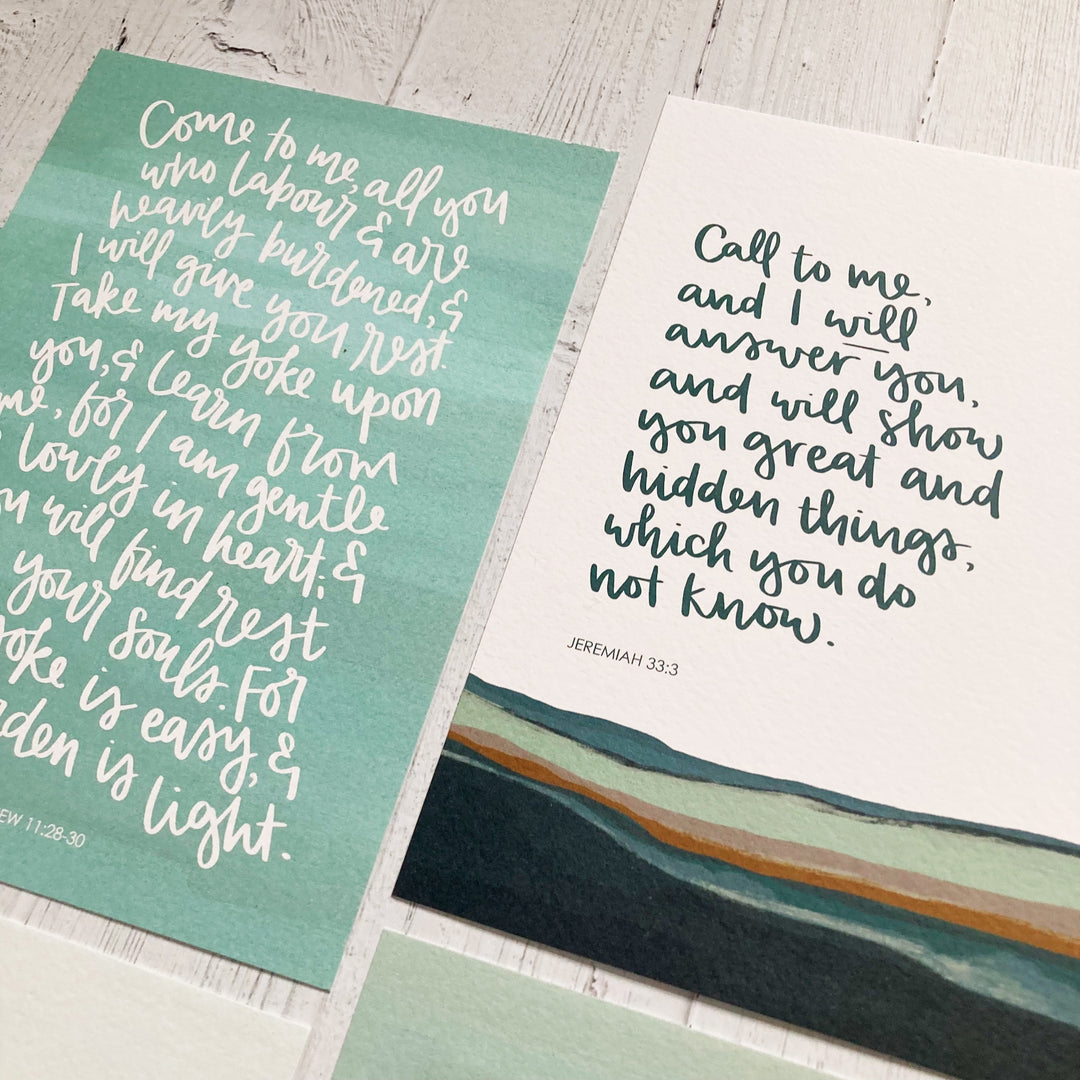 Come to me, all you
who labour & are
heavily burdened, &
I will give you rest.
Take my yoke upon
you, & learn from
me, for I am gentle
lovely in heart; &
will find rest
your souls. For
is easy, &
is light.
11:28-30
Call to me,
and I will
answer you,
and will show
you great and
hidden things,
which you do
not know.
JEREMIAH 33:3